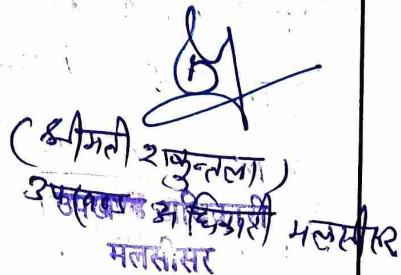 (श्रीमती शकुन्तला)
उपखण्ड अधिकारी मलसीसर
मलसीसर